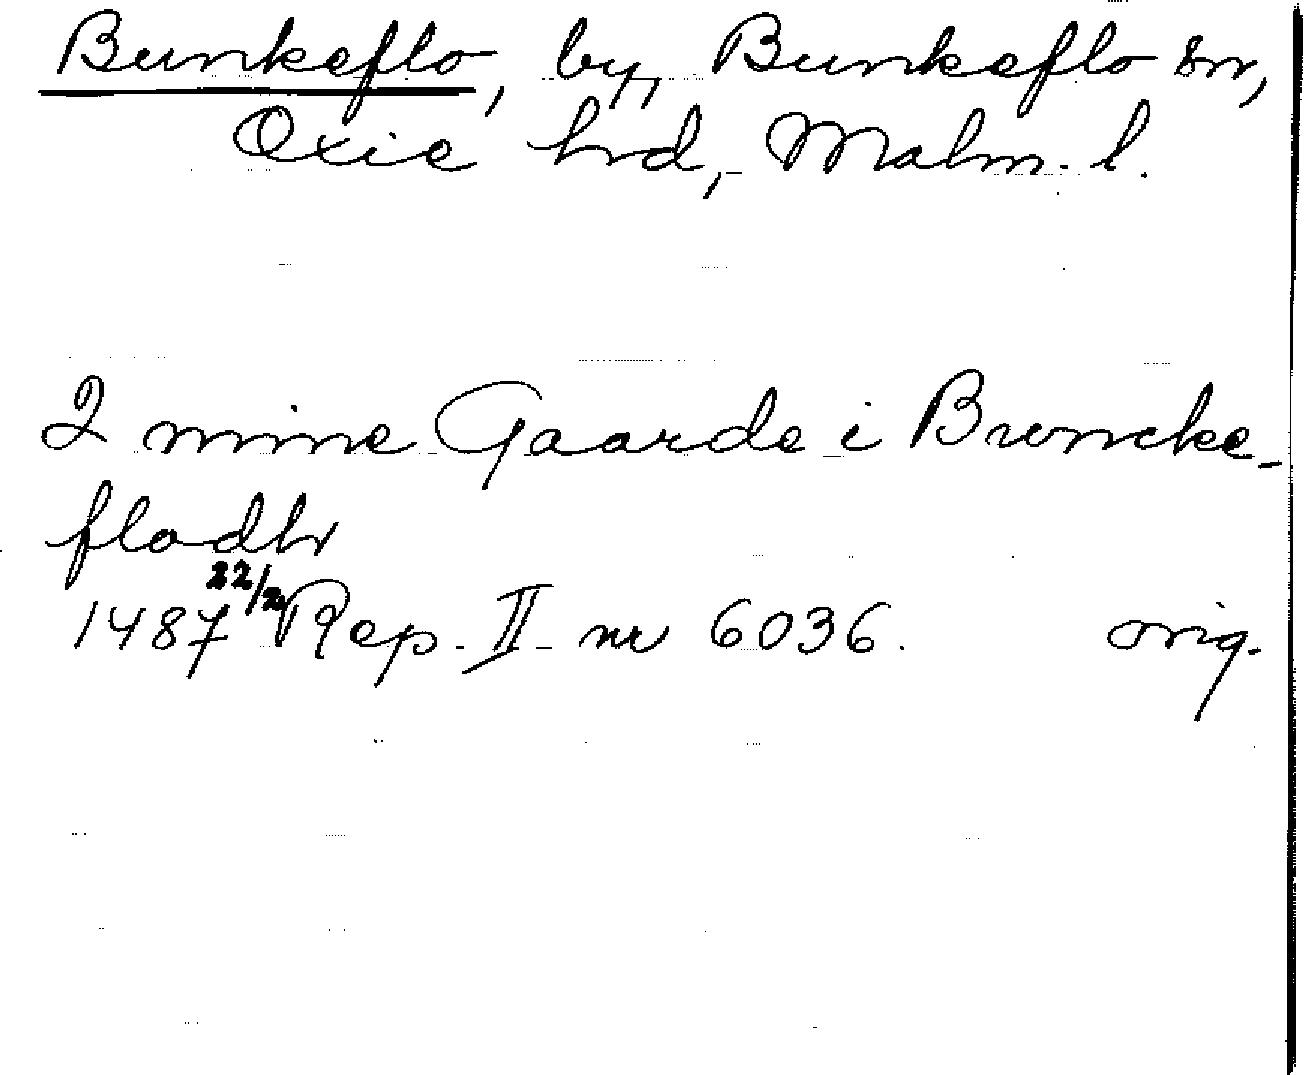 Bunkeflo, by, Bunkeflo sn,
Oxie hrd, Malm. l.
2 mine Gaarde i Bruncke-
flodh
1487 22/2 Rep. II nr 6036. orig.